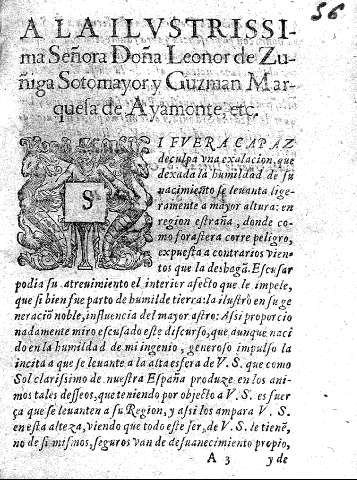 56
A LA ILVSTRISSI-
ma Señora Doña Leonor de Zu-
ñiga Sotomayor y Guzman Mar-
quesa de Ayamonte, etc.
S
I FVERA CAPAZ
de culpa vna exalacion, que
dexada la humildad de su
nacimiento se leuanta lige-
ramente a mayor altura: en
region estraña, donde co-
mo forastera corre peligro,
expuesta a contrarios vien-
tos que la deshagã. Escusar
podia su atreuimiento el interior afecto que le impele,
que si bien fue parto de humilde tierra: la ilustrò en su ge
neraciõ noble, influencia del mayor astro: Assi proporcio
nadamente miro escusado este discurso, que aunque naci
do en la humildad de mi ingenio, generoso impulso la
incita a que se leuante a la alta esfera de V. S. que como
Sol clarissimo de nuestra España produze en los ani-
mos tales desseos, que teniendo por objecto a V. S. es fuer
ça que se leuanten a su Region, y assi los ampara V. S.
en esta alteza, viendo que todo este ser, de V. S. le tienẽ,
no de si mismos, seguros van de desuanecimiento propio,
A 3
y de